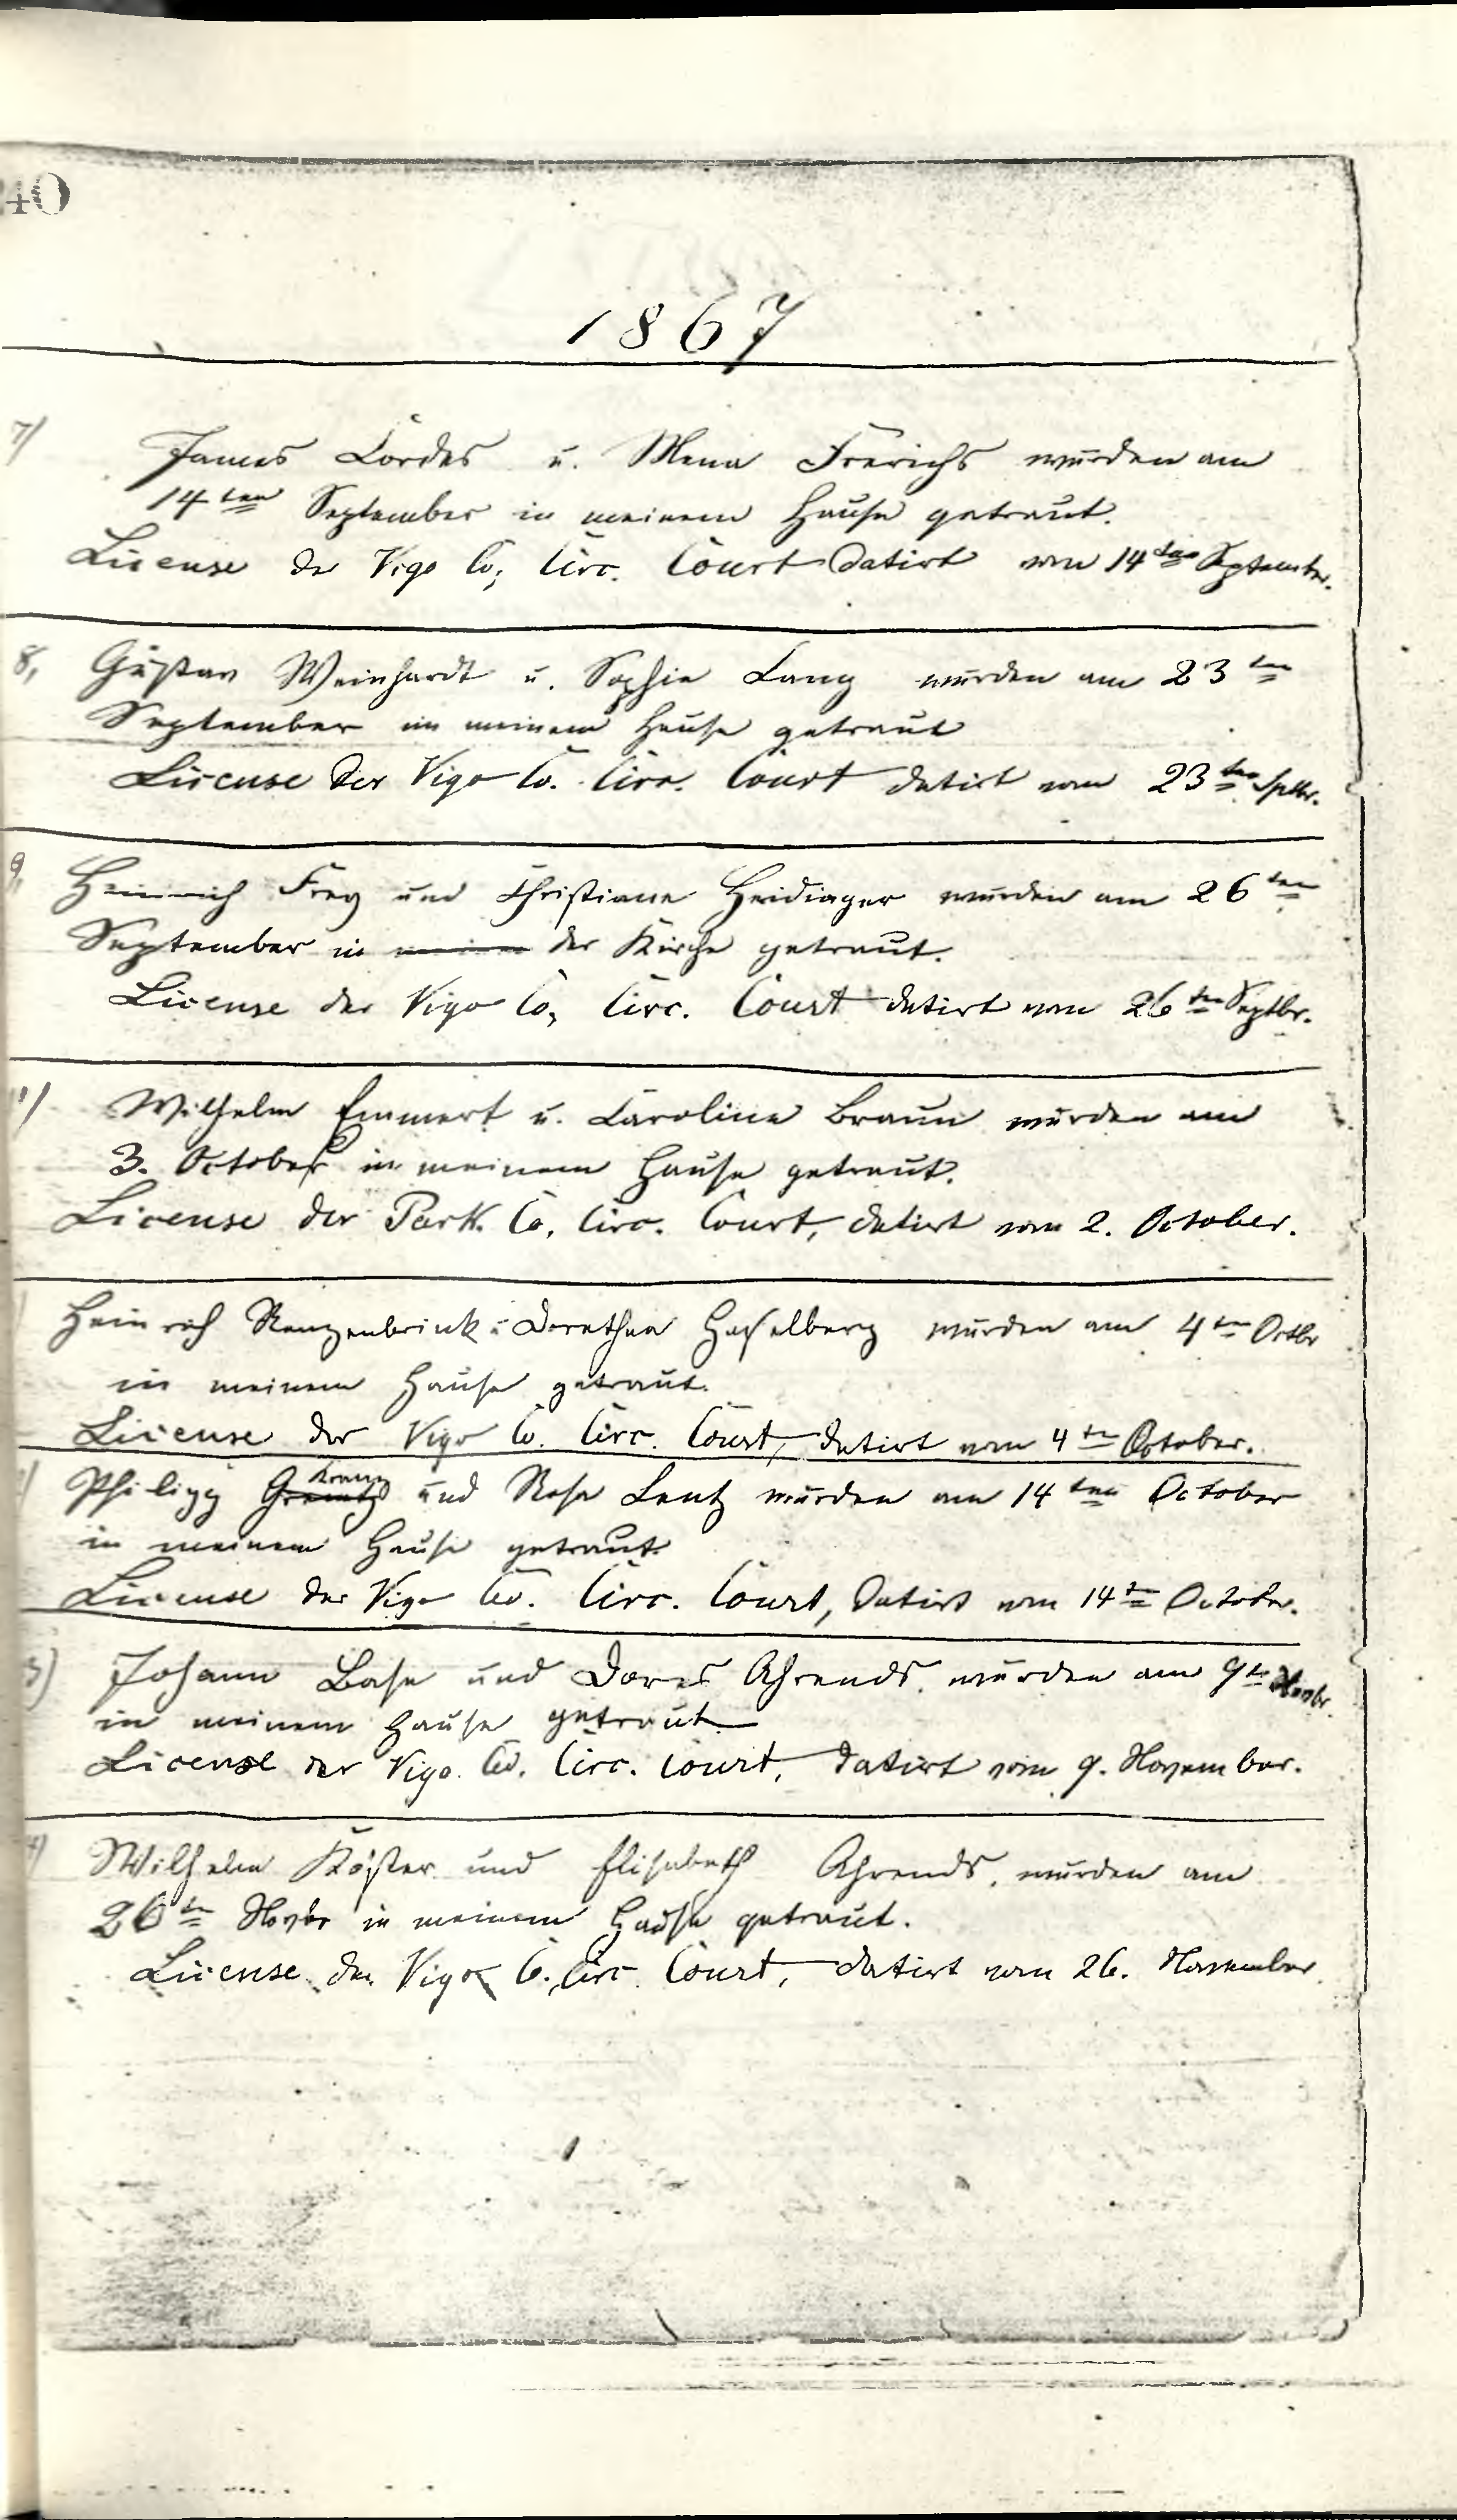 40
1867
7/ James Cordes u. Mena Frerichs wurden am
14ten September in meinem Hause getraut.
License der Vigo Co, Circ. Court datirt vom 14ten September.
8, Gustav Weinhardt u. Sophie Lang wurden am 23ten
September in meinem Hause getraut
License der Vigo Co. Circ. Court datirt vom 23ten Sptbr.
9, Heinrich Frey und Christiane Heidinger wurden am 26ten
September in meinem der Kirche getraut.
License der Vigo Co, Circ. Court datirt vom 26ten Septbr.
Wilhelm Emmert u. Caroline Braun wurden am
3. October in meinem Hause getraut.
License der Park Co. Circ. Court, datirt vom 2. October.
Heinrich Renzenbrink u Dorothea Hasselberg wurden am 4ten Octbr
in meinem Hause getraut.
License der Vigo Co. Circ. Court, datirt vom 4ten October.
Philipp Kranz und Rosa Lentz wurden am 14ten October
in meinem Hause getraut
License der Vigo Co. Circ. Court, datirt vom 14ten October.
3) Johann Base und Dores Ahrends, wurden am 9ten Novbr.
in meinem Hause getraut
License der Vigo Co. Circ. Court, datirt vom 9. November.
4) Wilhelm Köster und Elisabeth Ahrends, wurden am
26ten Novbr in meinem Hause getraut.
License der Vigo Co. Circ. Court, datirt vom 26. November